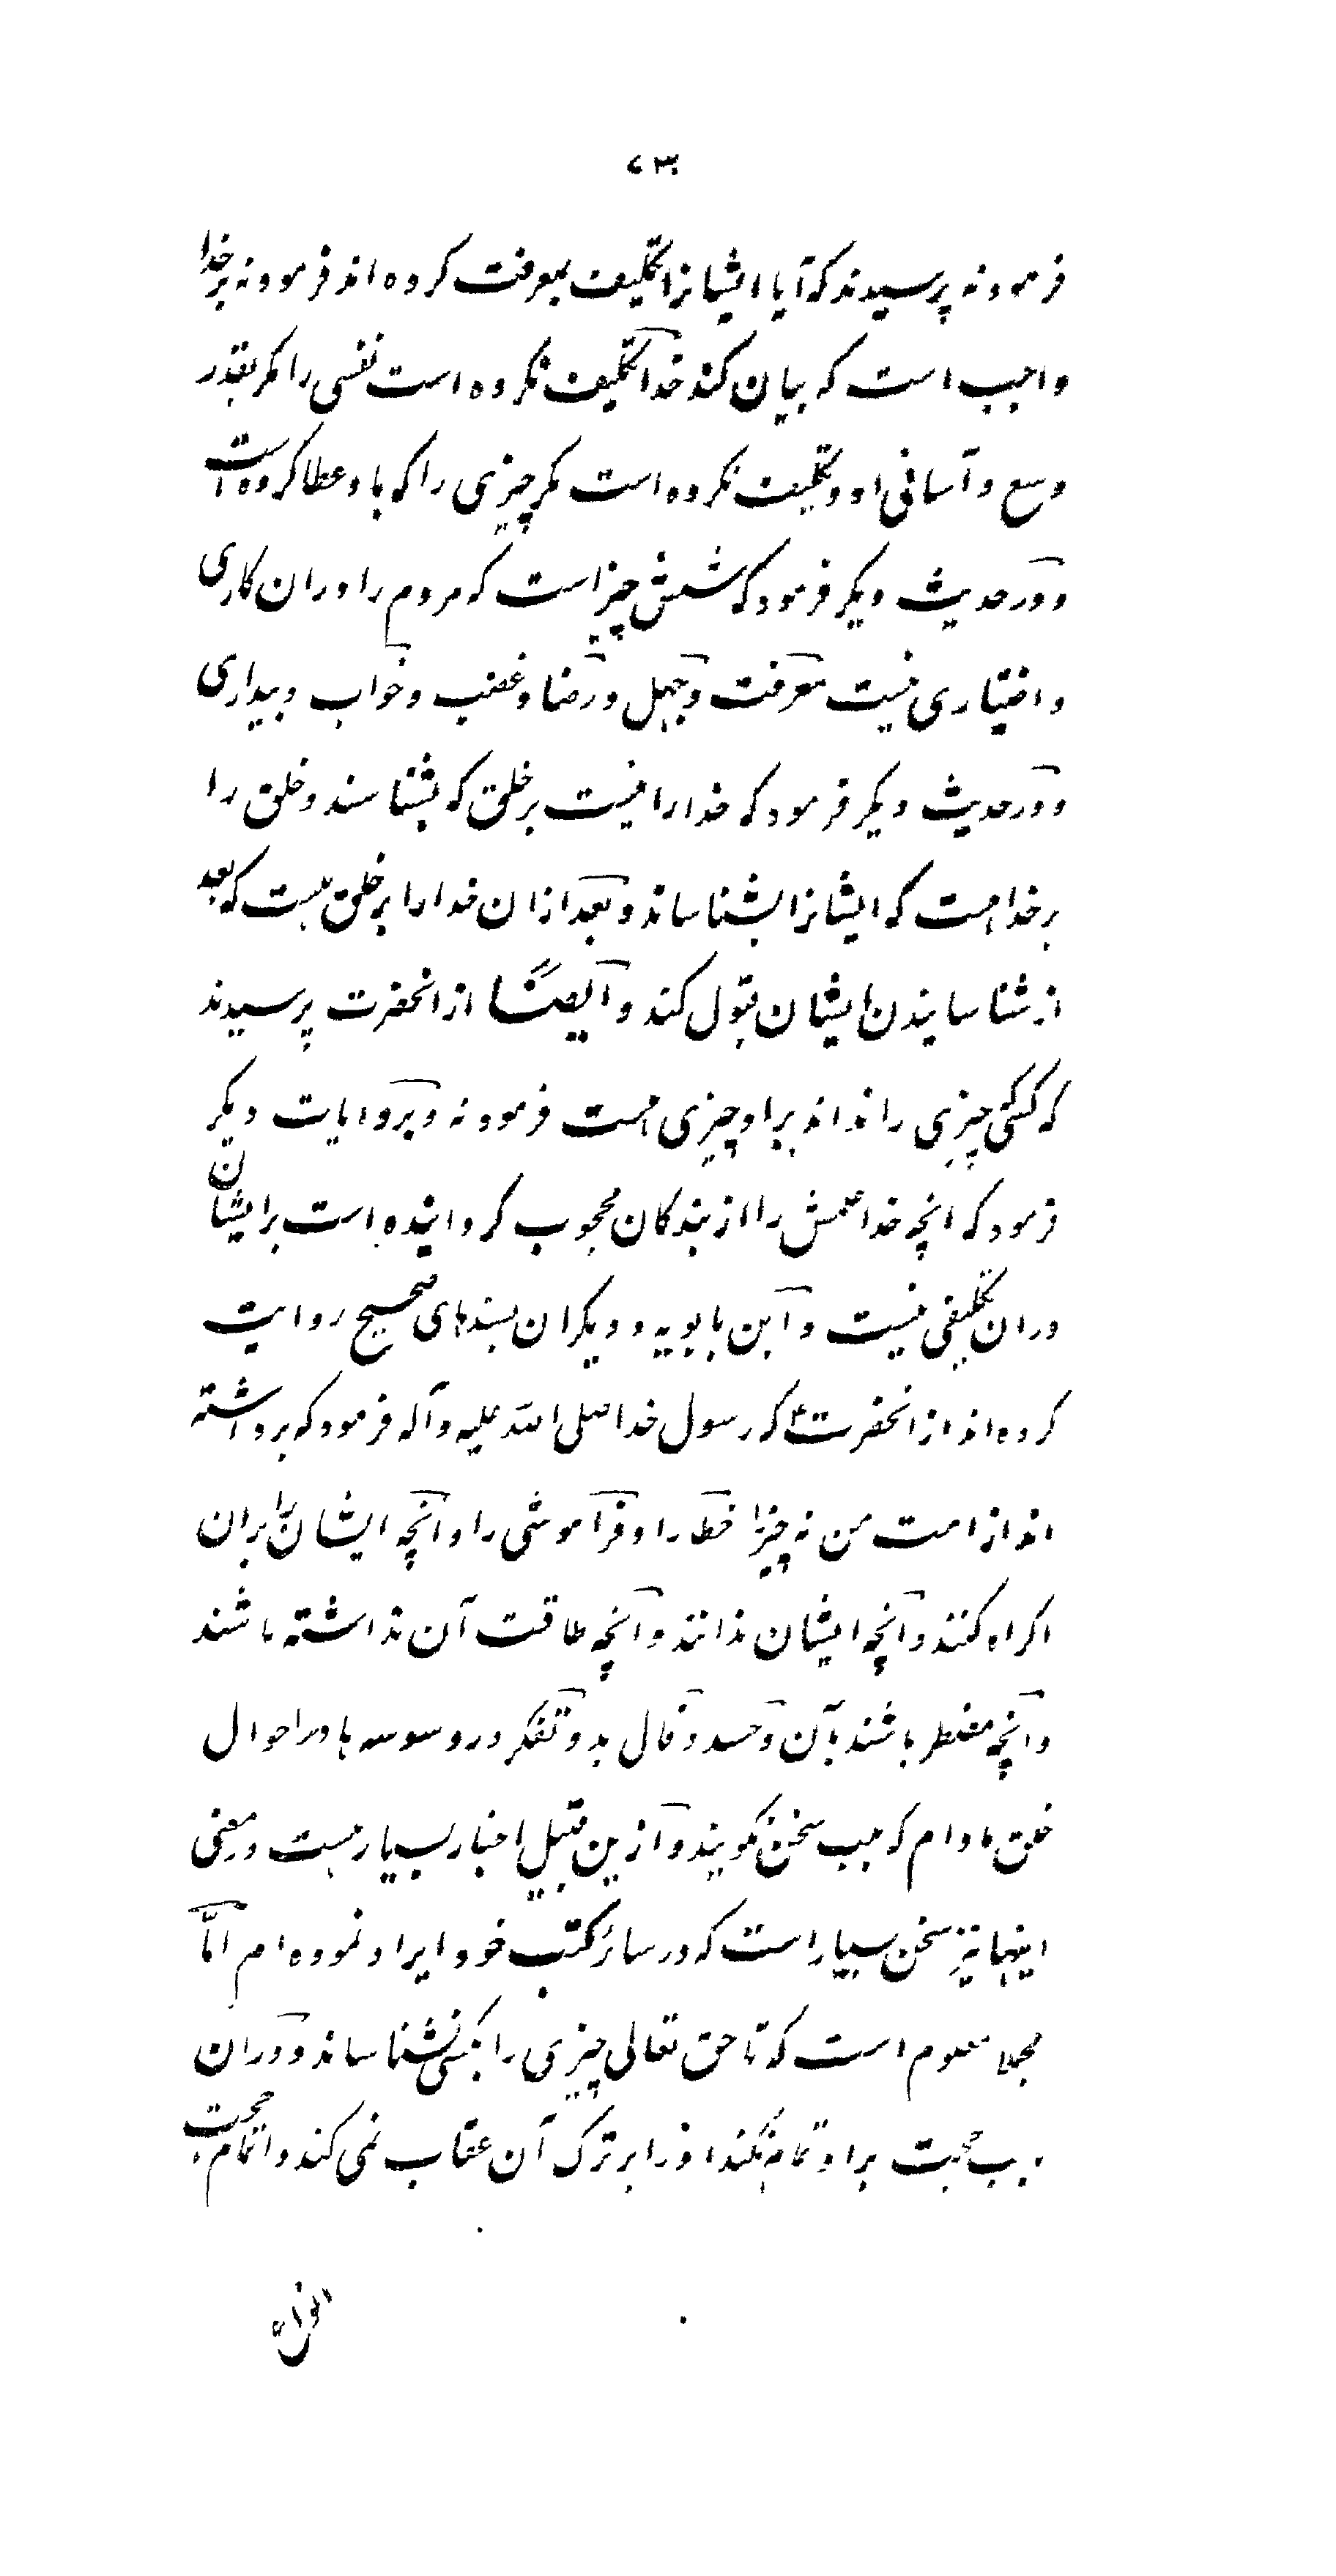 ۷۳
فرمود نه پرسیدند که آیا ایشانرا تکلیف بمعرفت کرده اند فرمود نه بر خدا
واجب است که بیان کند خدا تکلیف نکرده است نفسی را مکر بقدر
وسع و آسانی او و تکلیف نکرده است مکر چیزی را که باو عطا کرده است
و در حدیث دیکر فرمود که شش چیز است که مردم را دران کاری
و اختیاری نیست معرفت و جهل و رضا و غضب و خواب و بیداری
و در حدیث دیکر فرمود که خدا را نیست بر خلق که بشناسند و خلق را
بر خدا هست که ایشانرا بشناساند و بعد ازان خدا را بر خلق هست که بعد
از شناسایندن ایشان قبول کند و ایضًا از انحضرت پرسیدند
که کسی چیزی را نداند بر او چیزی هست فرمود نه و بروایات دیکر
فرمود که انچه خدا علمش را از بندکان محجوب کردانیده است بر ایشان
دران تکلیفی نیست و ابن بابویه و دیکران بسندهای صحیح روایت
کرده اند از انحضرت که رسول خدا صلی الله علیه و آله فرمود که برداشته
اند از امت من نه چیز خطا را و فراموشی را و انچه ایشان را بران
اکراه کنند و انچه ایشان ندانند و انچه طاقت آن نداشته باشند
و انچه مضطر باشند بآن و حسد و فال بد و تفکر در وسوسه ها در احوال
خلق مادام که بلب سخن نکویند و ازین قبیل اخبار بسیار هست و در معنی
اینها نیز سخن بسیار است که در سائر کتب خود ایراد نموده ام امّا
مجملا معلوم است که تا حق تعالی چیزی را بکسی نشناساند و دران
باب حجت بر او تمام نکند او را بر ترک آن عقاب نمی کند و اتمام حجت